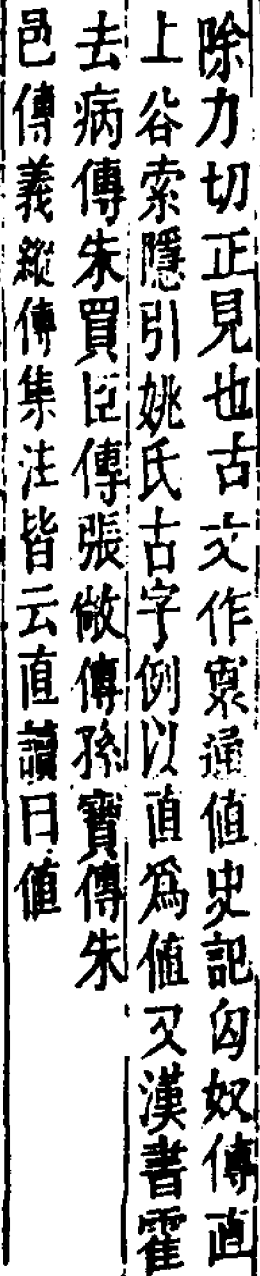 除力切正見也古文作稟通値史記匈奴傳直
上谷索隱引姚氏古字例以直爲値又漢書霍
去病傳朱買臣傳張敞傳孫寶傳朱
邑傳義縱傳集注皆云直讀曰値